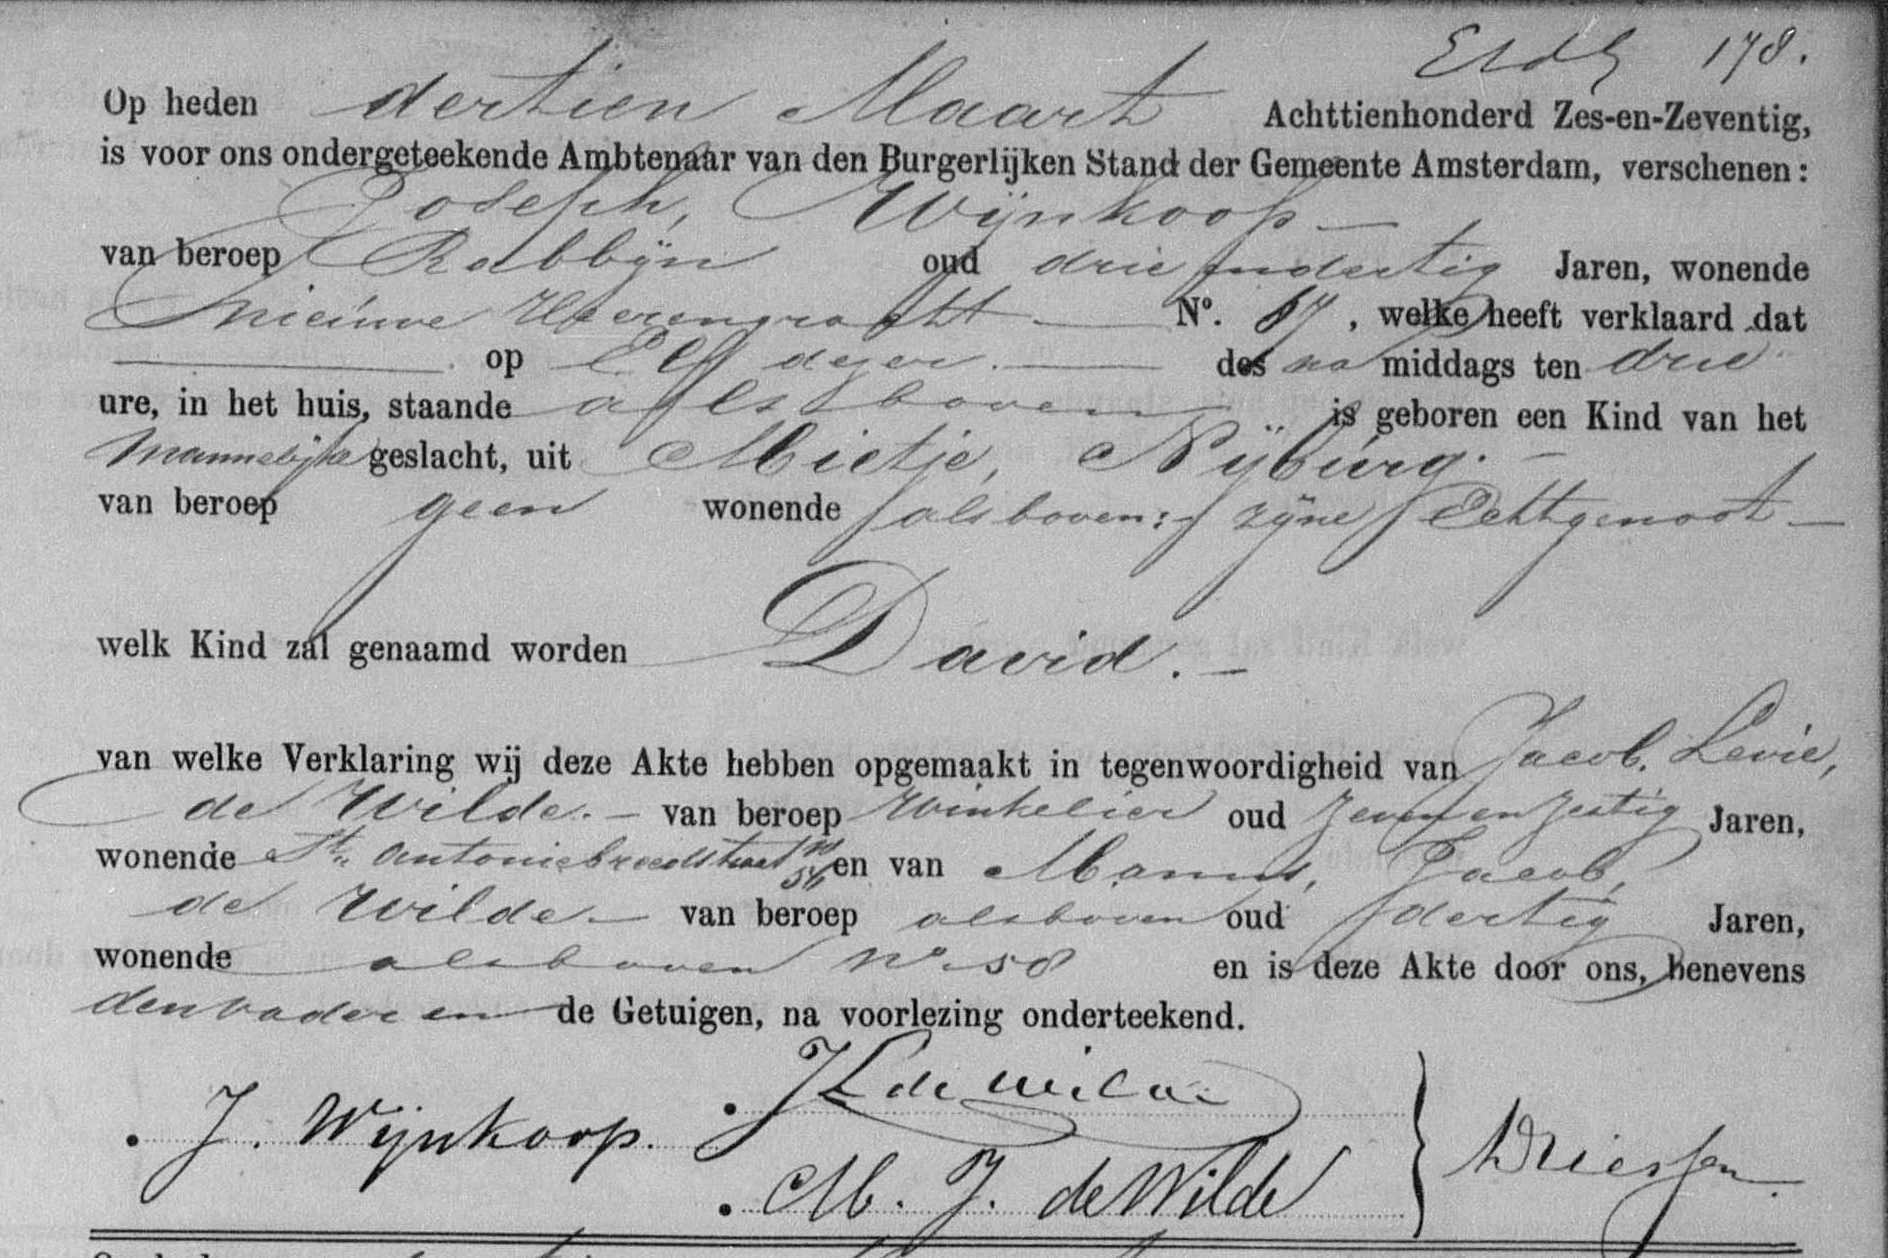 178.
Op heden dertien Maart Achttienhonderd Zes-en-Zeventig,
is voor ons ondergeteekende Ambtenaar van den Burgerlijken Stand der Gemeente Amsterdam, verschenen:
Joseph, Wijnkoop –
van beroep Rabbijn oud drie en dertig Jaren, wonende
Nieuwe Heerengracht — No. 87, welke heeft verklaard dat
— op Elf dezer. — des na middags ten drie
ure, in het huis, staande als boven is geboren een Kind van het
Mannelijke geslacht, uit Mietje, Nijburg. –
van beroep geen wonende als boven: zijne Echtgenoot –
welk Kind zal genaamd worden David. –
van welke Verklaring wij deze Akte hebben opgemaakt in tegenwoordigheid van Jacob, Levie,
de Wilde. – van beroep Winkelier oud zeven en zestig Jaren,
wonende St. Antoniebreedstraat no 56 en van Manus, Jacob,
de Wilde – van beroep als boven oud dertig Jaren,
wonende als boven no 58 en is deze Akte door ons, benevens
den vader en de Getuigen, na voorlezing onderteekend.
J L de Wilde
J. Wijnkoop.
M. J. de Wilde
Driessen